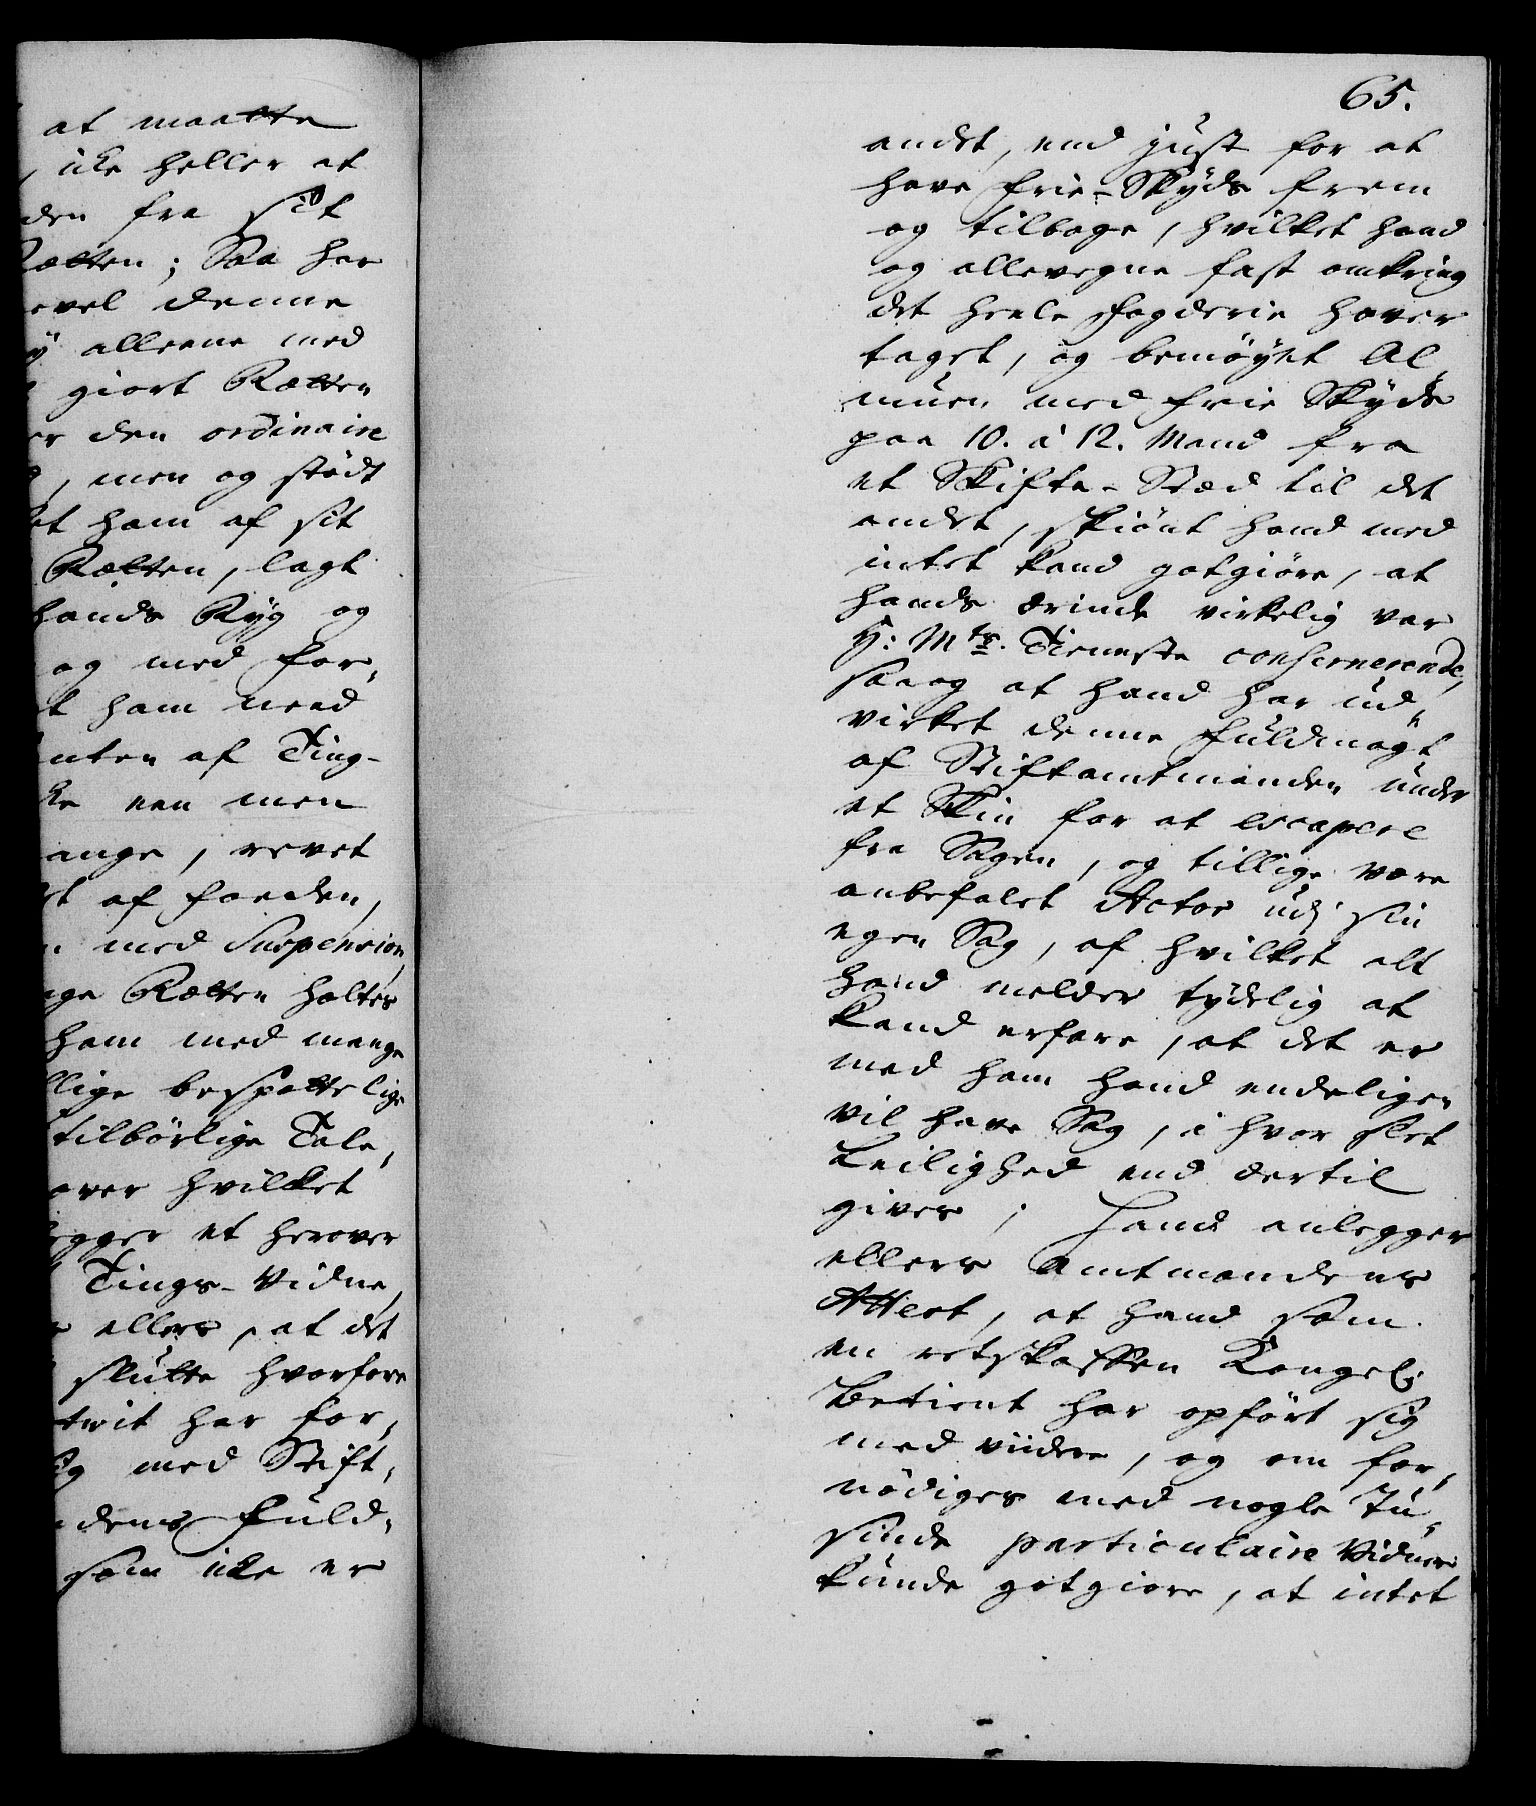 at maatte
, icke heller at
den fra sit
Rætten; Saa har
evel denne
y alleene med
giort Rætten
er den ordinaire
, men og stödt
et ham af sit
Rætten, lagt
hands Ryg og
og med for„
t ham need
inten af Ting-
ke een men
ange, revet
t af foeden,
med Suspension,
ge Rætten holtes
ham med mange
llige bespottelige
tilbörlige Tale,
over hvilcket
egger et herover
Tings-Vidne,
ellers, at det
slutte hvorfore
twit har for„
ig med Stift„
dens Fuld„
som icke er
65.
andet, end just for at
have frie-Skyds frem
og tilbage, hvilket hand
og allevegne fast omkring
det heele Fogderie haver
taget, og bemöyet Al„
muen med frie Skyds
paa 10. à 12. Mand fra
et Skifte-Stæd til det
andet, skiönt hand med
intet kand gotgiöre, at
hands ærinde virkelig var
H: Mts. Tieneste conserneren̄de,
saa og at hand har ud„
virket denne Fuldmagt
af Stiftamtmanden under
et Skin for at escapere
fra Sagen, og tillige være
anbefalet Actor udj sin
egen Sag, af hvilket alt
hand melder tydelig at
kand erfare, at det er
med ham hand endeligen
vil have Sag, i hvor slet
Leilighed end dertil
gives; Hand anlegger
ellers Amtmandens
Attest, at hand som
en retskaffen Kongel:
Betient har opfört sig
med viidere, og om for„
nödiges med nogle Tu„
sinde particulaire Vidner
kunde gotgiöre, at intet